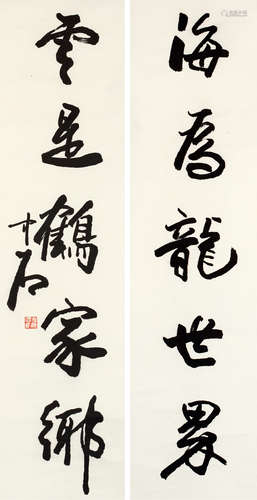 海為龍世界
雲是鶴家鄉
中石